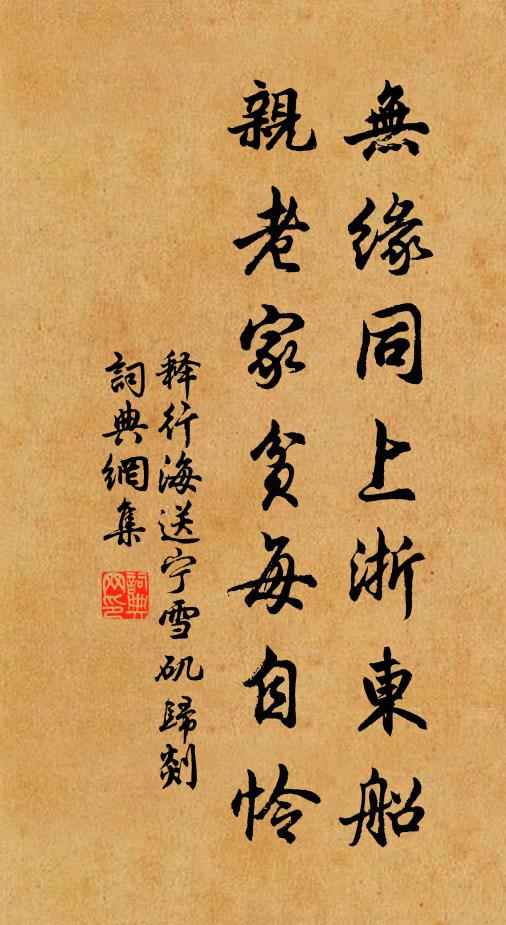 無緣同上浙東船
親老家貧每自怜
释行海送宁雪矶歸剡
詞典網集
詞典网印